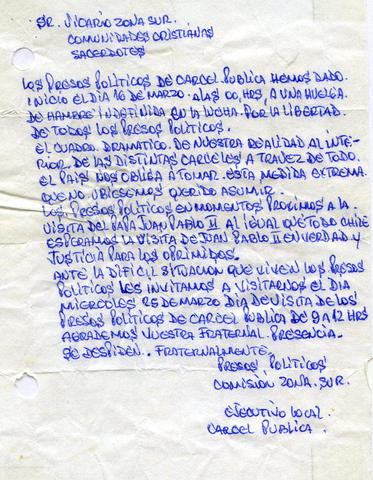 SR. VICARIO ZONA SUR.
COMUNIDADES CRISTIANAS
SACERDOTES
LOS PRESOS POLITICOS DE CARCEL PUBLICA HEMOS DADO.
INICIO EL DIA 16 DE MARZO. A LAS 00, HRS, A UNA HUELGA.
DE HAMBRE INDEFINIDA EN LA LUCHA. POR LA LIBERTAD.
DE TODOS LOS PRESOS POLITICOS.
EL CUADRO. DRAMATICO. DE NUESTRA REALIDAD AL INTE-
RIOR. DE LAS DISTINTAS CARCELES A TRAVEZ DE TODO.
EL PAIS NOS OBLIGA A TOMAR. ESTA MEDIDA EXTREMA.
QUE NO UBIESEMOS QUERIDO ASUMIR.
LOS PRESOS POLITICOS EN MOMENTOS PROXIMOS A LA.
VISITA DEL PAPA JUAN PABLO II AL IGUAL QUE TODO CHILE
ESPERAMOS LA VISITA DE JUAN PABLO II EN VERDAD Y
JUSTICIA PARA LOS OPRIMIDOS.
ANTE LA DIFICIL SITUACION QUE VIVEN LOS PRESOS
POLITICOS LES INVITAMOS A VISITARNOS EL DIA
MIERCOLES 25 DE MARZO DIA DE VISITA DE LOS
PRESOS POLITICOS DE CARCEL PUBLICA DE 9 A 12 HRS
AGRADEMOS VUESTRA FRATERNAL. PRESENCIA-
SE DESPIDEN.. FRATERNALMENTE.
PRESOS POLITICOS
COMISION ZONA. SUR.
EJECUTIVO LOCAL.
CARCEL PUBLICA.